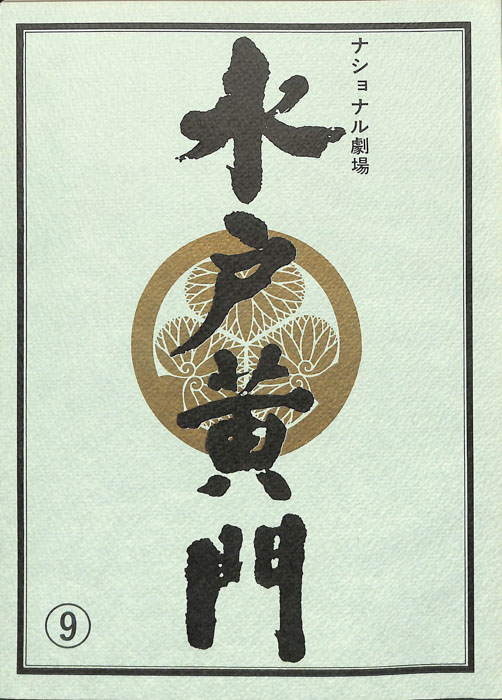 ナショナル劇場
水戸黄門
⑨